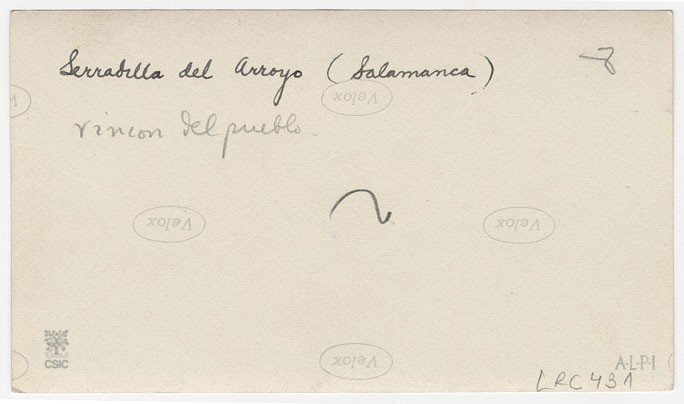 Serradilla del Arroyo (Salamanca)
Velox
rincon del pueblo.
Velox
Velox
CSIC
Velox
A·L·P·I
LRC 431